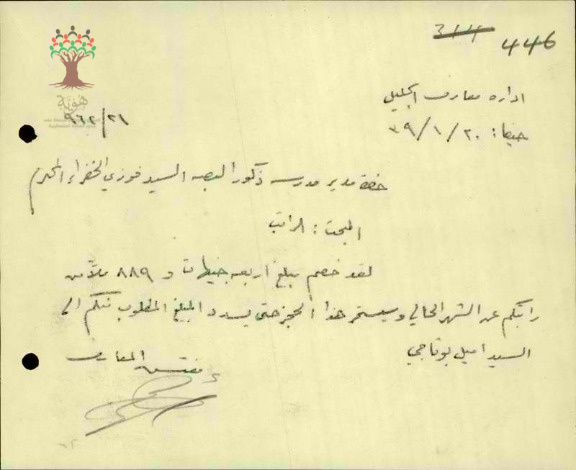 311
446
هوية
اداره معارف الجليل
٩٦٢/٢٦
حيفا: ٢٠/١/٣٩
حضرة مدير مدرسه ذكور البصه السيد فوزي الخضراء المحترم
المبحث: الراتب
لقد خصم مبلغ اربعه جنيهات و ٨٨٩ ملاً من
راتبكم عن الشهر الحالي وسيستمر هذا الحجز حتى يسدد المبلغ المطلوب منكم الى
السيد اميل بوتاجي
مفتش المعارف